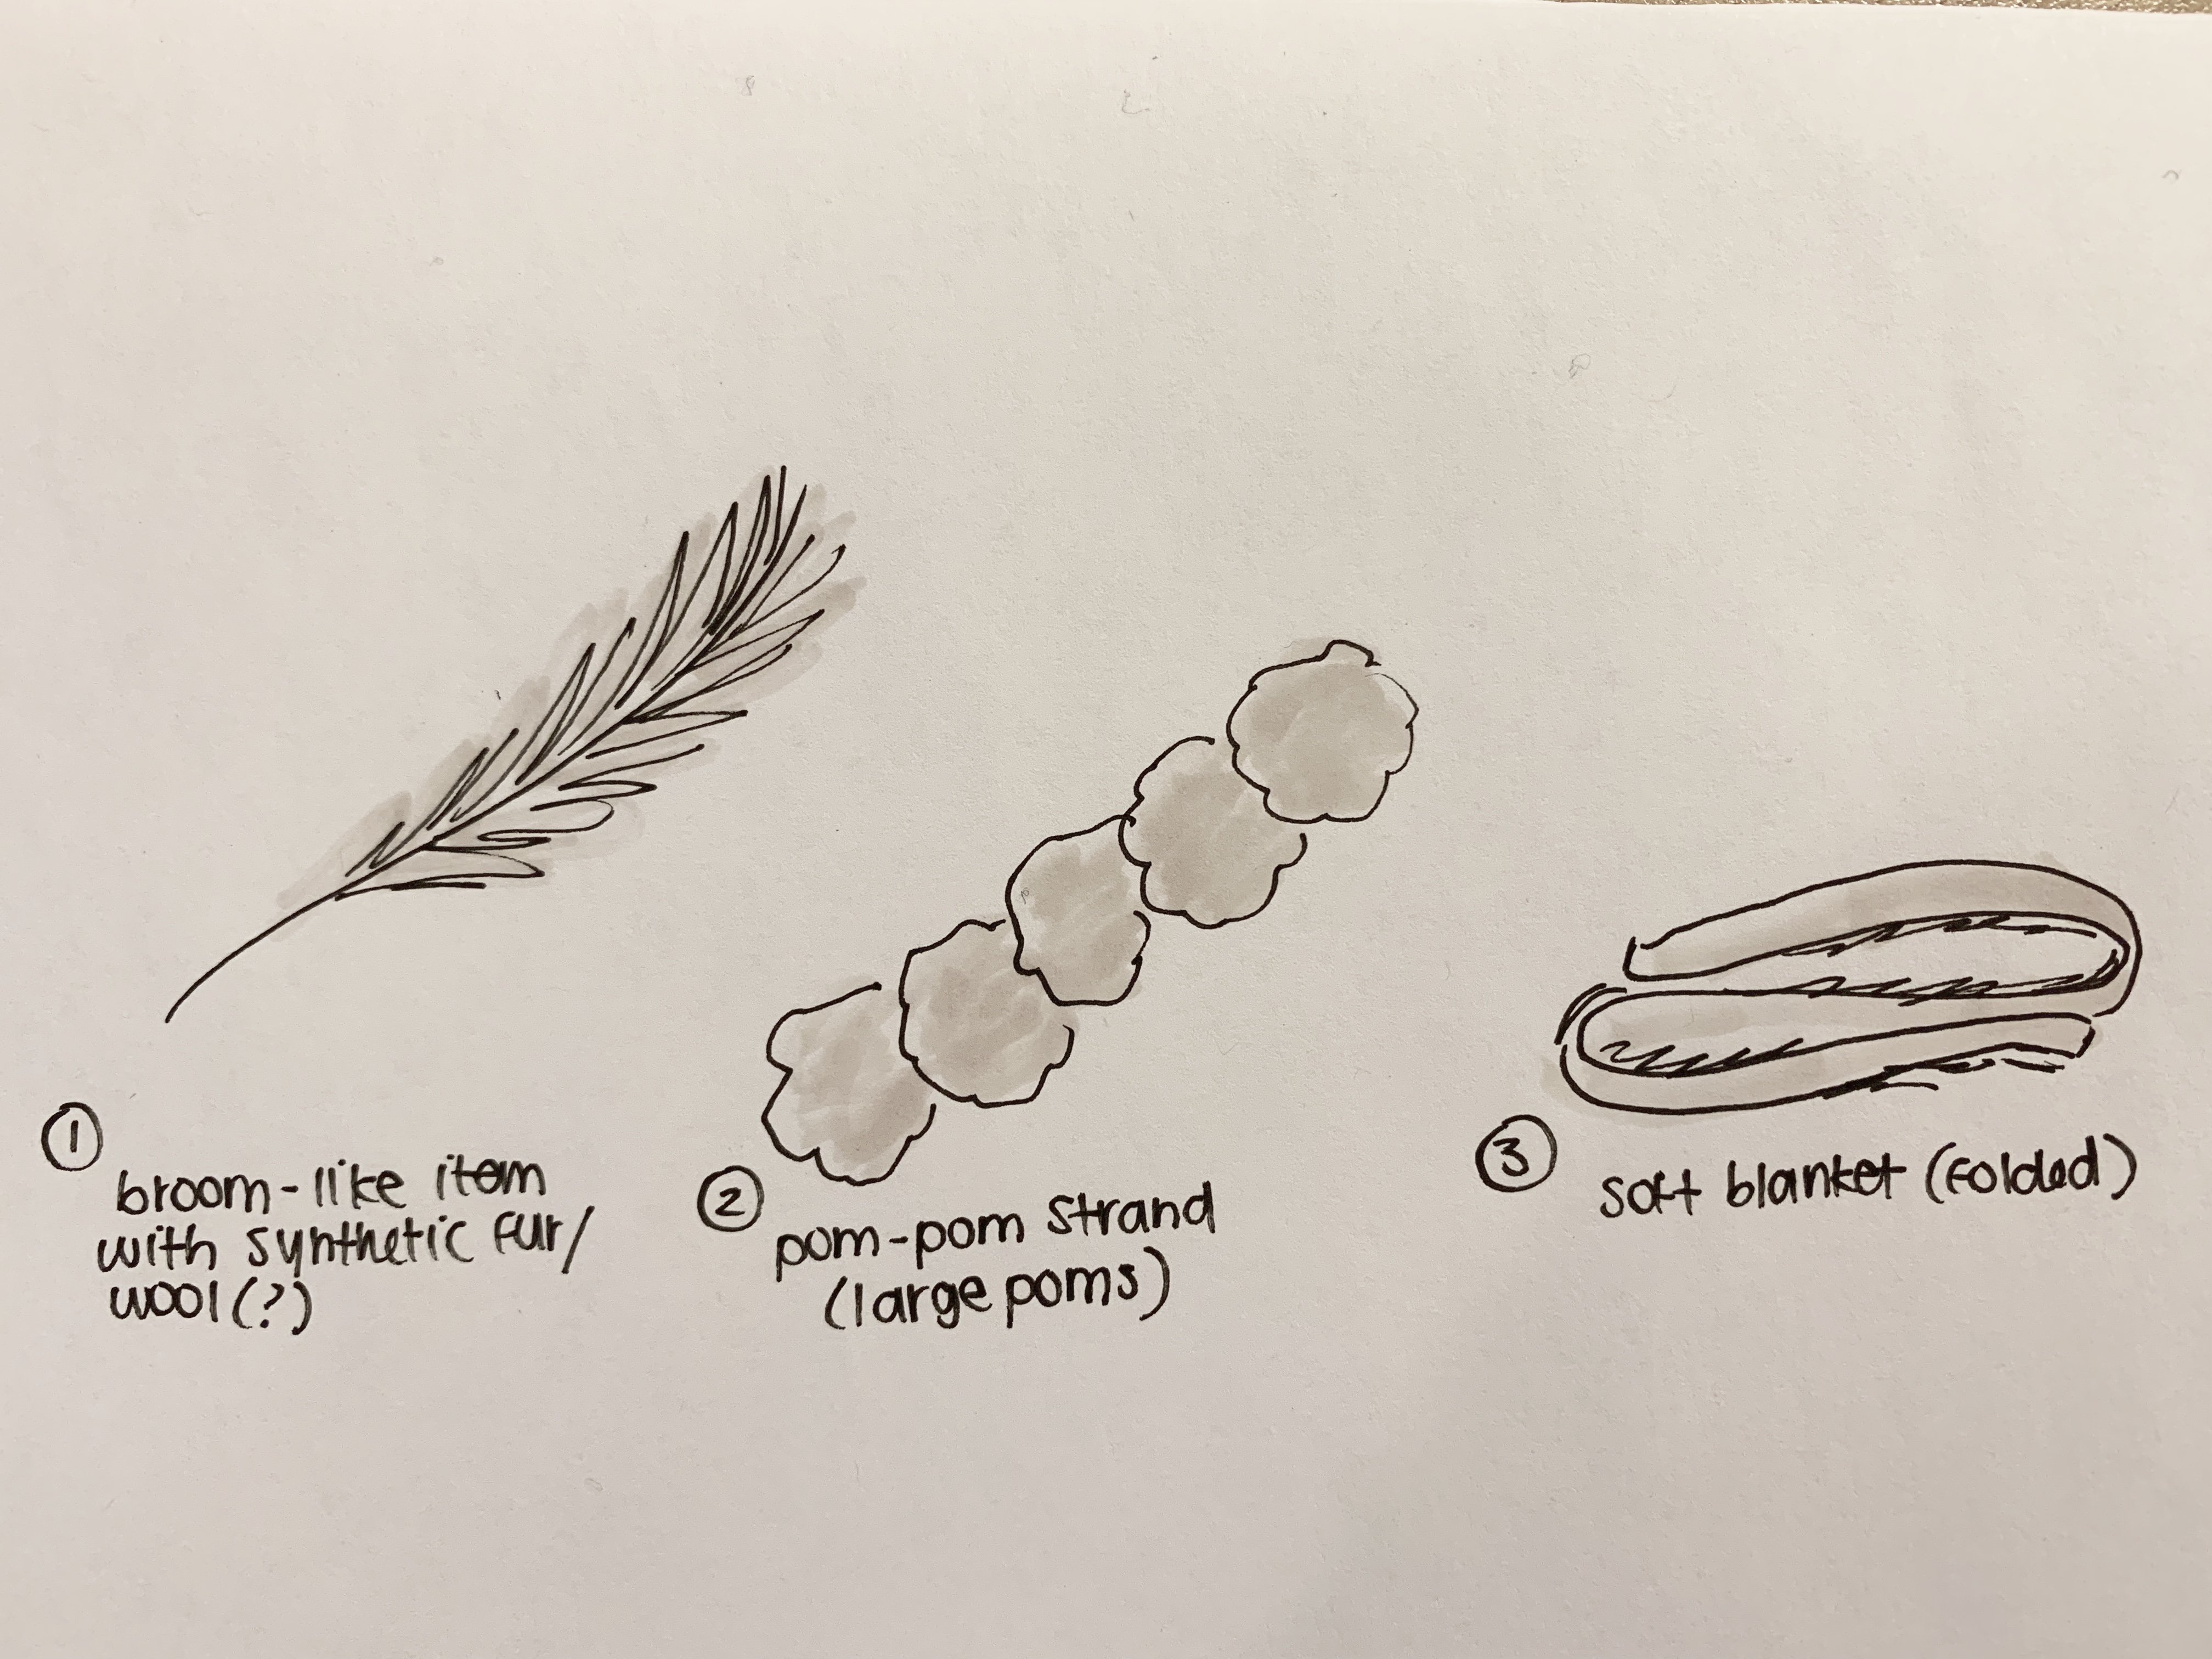 ①
broom-like item
with synthetic fur/
wool(?)
②
pom-pom strand
(large poms)
③
soft blanket (folded)